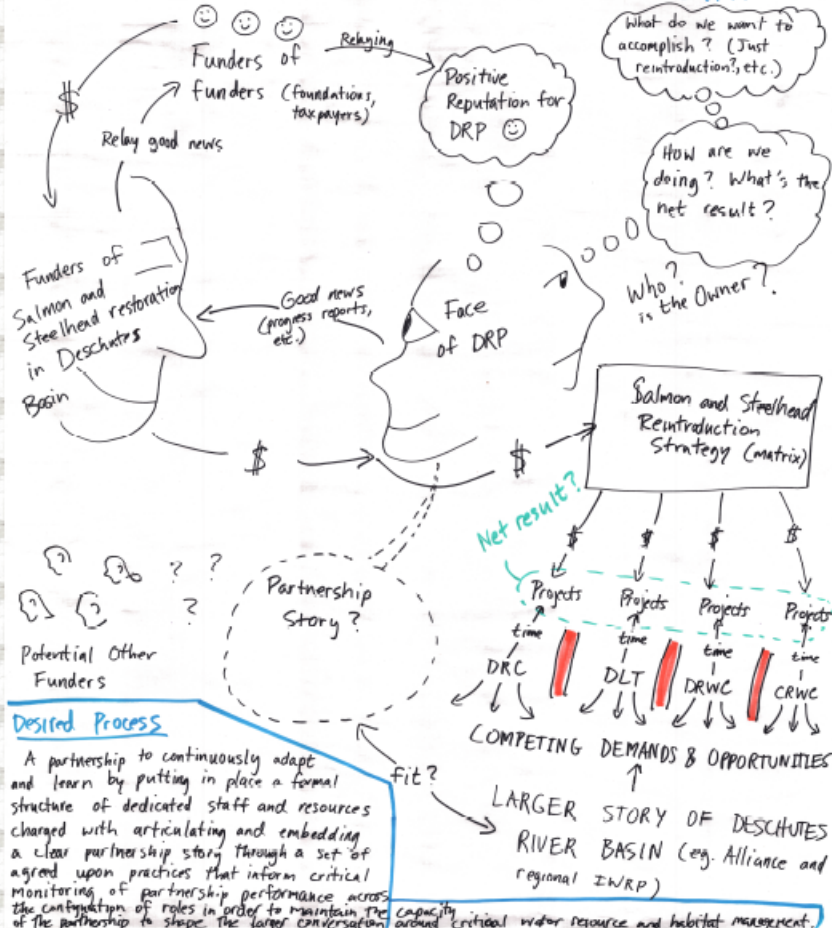 Funders of
funders (foundations,
taxpayers)
Relaying
$
Relay good news
Positive
Reputation for
DRP
What do we want to
accomplish? (Just
reintroduction?, etc.)
How are we
doing? What's the
net result?
Who?
is the Owner?
Funders of
Salmon and
Steelhead restoration
in Deschutes
Basin
Good news
(progress reports,
etc.)
Face
of DRP
$
$
Salmon and Steelhead
Reintroduction
Strategy (matrix)
Net result?
$ $ $ $
Projects Projects Projects Projects
time time time time
DRC DLT DRWC CRWC
COMPETING DEMANDS & OPPORTUNITIES
Partnership
Story?
? ?
?
Potential Other
Funders
fit?
LARGER STORY OF DESCHUTES
RIVER BASIN (eg. Alliance and
regional IWRP)
Desired Process
A partnership to continuously adapt
and learn by putting in place a formal
structure of dedicated staff and resources
charged with articulating and embedding
a clear partnership story through a set of
agreed upon practices that inform critical
monitoring of partnership performance across
the configuration of roles in order to maintain the capacity
of the partnership to shape the larger conversation around critical water resource and habitat management.